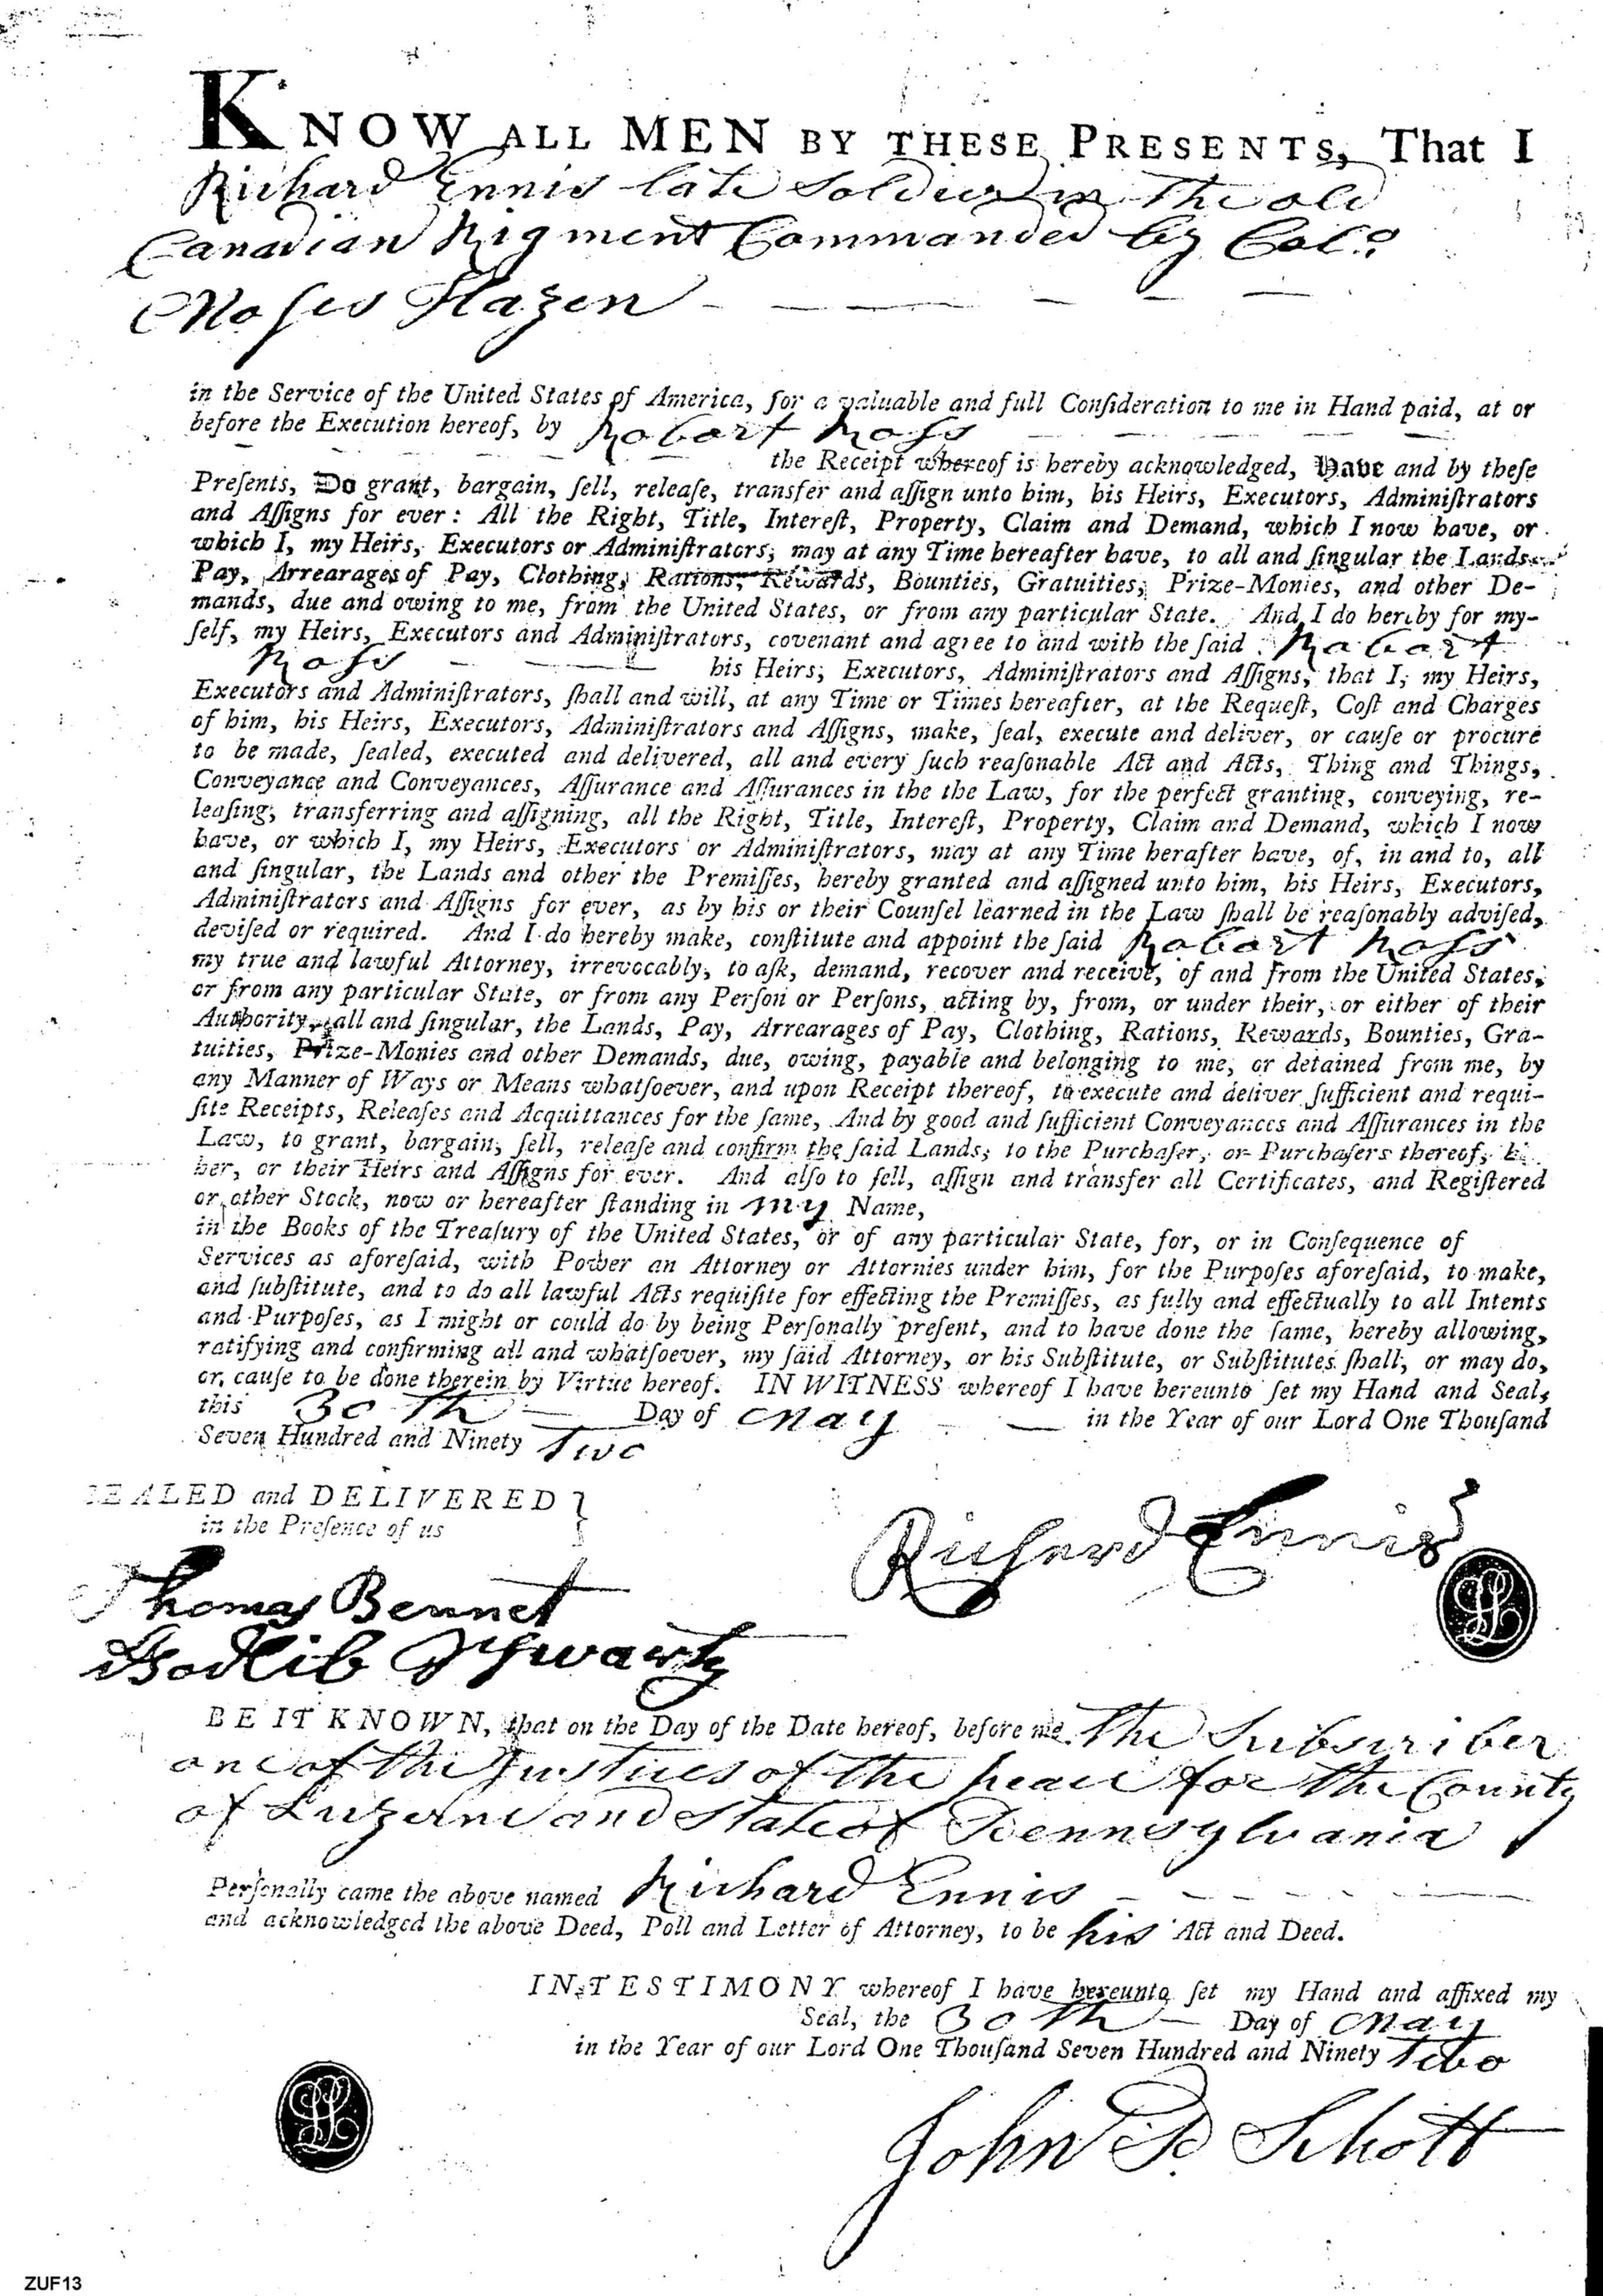 KNOW ALL MEN BY THESE PRESENTS, That I
Richard Ennis late Soldier in The old
Canadian Rigment Commanded by Colo
Moses Hazen
in the Service of the United States of America, for a valuable and full Conſideration to me in Hand paid, at or
before the Execution hereof, by Robart Roſs
the Receipt whereof is hereby acknowledged, Have and by theſe
Preſents, Do grant, bargain, ſell, releaſe, transfer and aſſign unto him, his Heirs, Executors, Adminiſtrators
and Aſſigns for ever: All the Right, Title, Intereſt, Property, Claim and Demand, which I now have, or
which I, my Heirs, Executors or Adminiſtrators, may at any Time hereafter have, to all and ſingular the Lands
Pay, Arrearages of Pay, Clothing, Rations, Rewards, Bounties, Gratuities, Prize-Monies, and other De-
mands, due and owing to me, from the United States, or from any particular State. And I do hereby for my-
ſelf, my Heirs, Executors and Adminiſtrators, covenant and agree to and with the ſaid Robart
Roſs his Heirs, Executors, Adminiſtrators and Aſſigns, that I, my Heirs,
Executors and Adminiſtrators, ſhall and will, at any Time or Times hereafter, at the Requeſt, Coſt and Charges
of him, his Heirs, Executors, Adminiſtrators and Aſſigns, make, ſeal, execute and deliver, or cauſe or procure
to be made, ſealed, executed and delivered, all and every ſuch reaſonable Act and Acts, Thing and Things,
Conveyance and Conveyances, Aſſurance and Aſſurances in the the Law, for the perfect granting, conveying, re-
leaſing, transferring and aſſigning, all the Right, Title, Intereſt, Property, Claim and Demand, which I now
have, or which I, my Heirs, Executors or Adminiſtrators, may at any Time herafter have, of, in and to, all
and ſingular, the Lands and other the Premiſſes, hereby granted and aſſigned unto him, his Heirs, Executors,
Adminiſtrators and Aſſigns for ever, as by his or their Counſel learned in the Law ſhall be reaſonably adviſed,
deviſed or required. And I do hereby make, conſtitute and appoint the ſaid Robart Roſs
my true and lawful Attorney, irrevocably, to aſk, demand, recover and receive, of and from the United States,
or from any particular State, or from any Perſon or Perſons, acting by, from, or under their, or either of their
Authority, all and ſingular, the Lands, Pay, Arrearages of Pay, Clothing, Rations, Rewards, Bounties, Gra-
tuities, Prize-Monies and other Demands, due, owing, payable and belonging to me, or detained from me, by
any Manner of Ways or Means whatſoever, and upon Receipt thereof, to execute and deliver ſufficient and requi-
ſite Receipts, Releaſes and Acquittances for the ſame, And by good and ſufficient Conveyances and Aſſurances in the
Law, to grant, bargain, ſell, releaſe and confirm the ſaid Lands, to the Purchaſer, or Purchaſers thereof,
her, or their Heirs and Aſſigns for ever. And alſo to ſell, aſſign and transfer all Certificates, and Regiſtered
or other Stock, now or hereafter ſtanding in my Name,
in the Books of the Treaſury of the United States, or of any particular State, for, or in Conſequence of
Services as aforeſaid, with Power an Attorney or Attornies under him, for the Purpoſes aforeſaid, to make,
and ſubſtitute, and to do all lawful Acts requiſite for effecting the Premiſſes, as fully and effectually to all Intents
and Purpoſes, as I might or could do by being Perſonally preſent, and to have done the ſame, hereby allowing,
ratifying and confirming all and whatſoever, my ſaid Attorney, or his Subſtitute, or Subſtitutes ſhall, or may do,
or, cauſe to be done therein by Virtue hereof. IN WITNESS whereof I have hereunto ſet my Hand and Seal,
this 30 Th Day of May in the Year of our Lord One Thouſand
Seven Hundred and Ninety Two
SEALED and DELIVERED
in the Preſence of us
Richard Ennis
Thomas Bennet
Godlib Schwartz
BE IT KNOWN, that on the Day of the Date hereof, before me The Subscriber
one of the Justices of the peace for the County
of Luzerne and State of Pennsylvania
Perſonally came the above named Richard Ennis
and acknowledged the above Deed, Poll and Letter of Attorney, to be his Act and Deed.
IN TESTIMONY whereof I have hereunto ſet my Hand and affixed my
Seal, the 30 Th Day of May
in the Year of our Lord One Thouſand Seven Hundred and Ninety Two
John P. Schott
ZUF13